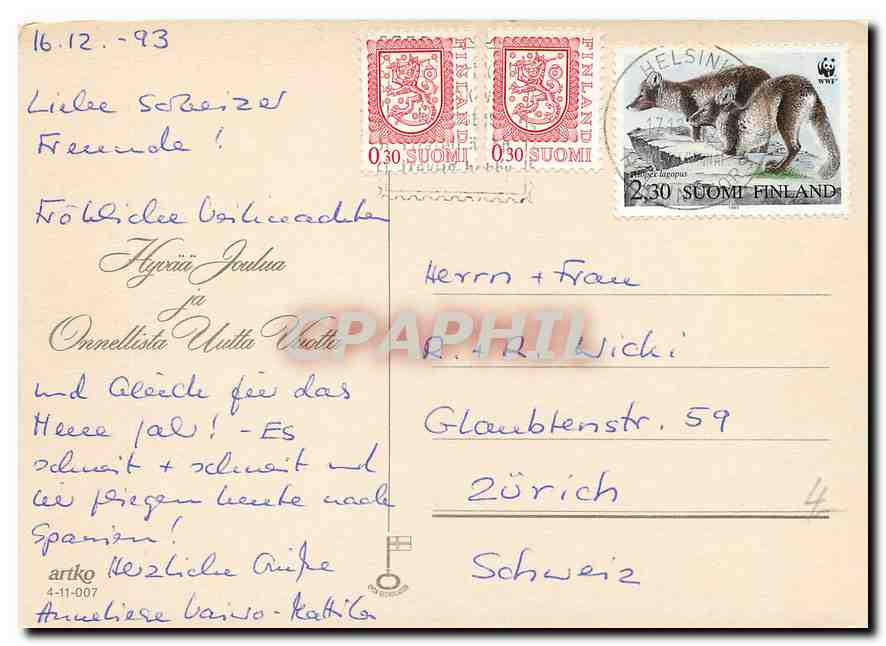 16.12.-93
Liebe Schweizer
Freunde!
Fröhliche Weihnachten
Hyvää Joulua
ja
Onnellista Uutta Vuotta
und Gleich für das
Neue Jahr! - Es
schneit + schneit und
wir fliegen heute nach
Spanien!
Herzliche Grüße
Anneliese Vaivo-Mattila
artko
4-11-007
FINLAND
0,30 SUOMI
FINLAND
0,30 SUOMI
HELSINKI
17.12
WWF
Alopex lagopus
2,30 SUOMI FINLAND
Herrn + Frau
R. + R. Wicki
Glaubtenstr. 59
Zürich
Schweiz
4
CPAPHIL